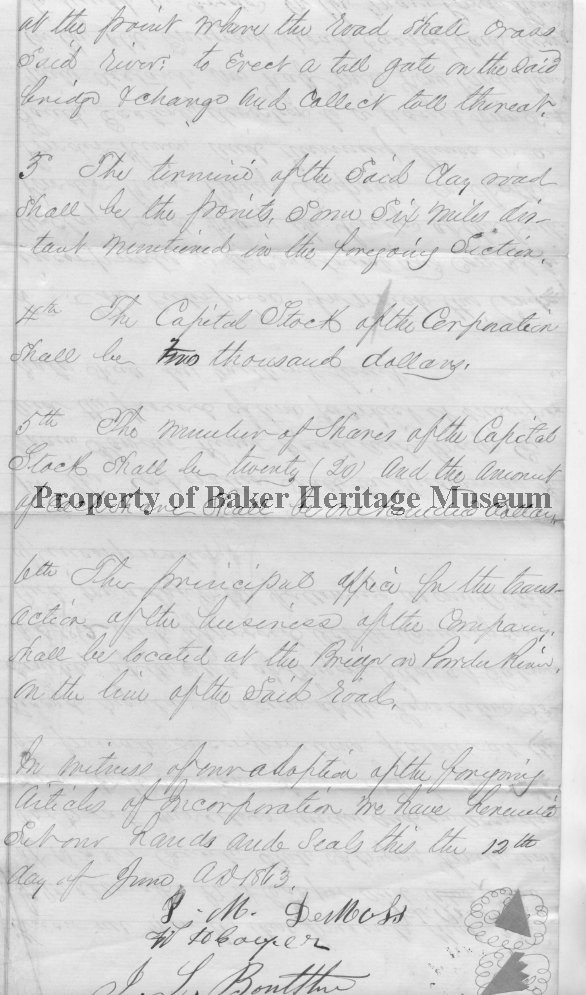 at the point where the road shall cross
said river; to Erect a toll gate on the said
bridge & charge and collect toll thereat.
3 The termini of the said Clay road
shall be the points, some six miles dis-
tant mentioned in the foregoing Section.
4th The Capital Stock of the Corporation
shall be Two thousand dollars.
5th The number of Shares of the Capital
Stock shall be twenty (20) and the amount
Property of Baker Heritage Museum
of each one shall be one hundred dollars
6th The principal office for the trans-
action of the business of the Company,
shall be located at the Bridge on Powder River,
on the line of the said road.
In witness of our adoption of the foregoing
Articles of Incorporation we have hereunto
Set our hands and Seals this the 12th
day of June AD 1863.
J. M. DeMoss
Cooper
J. L.